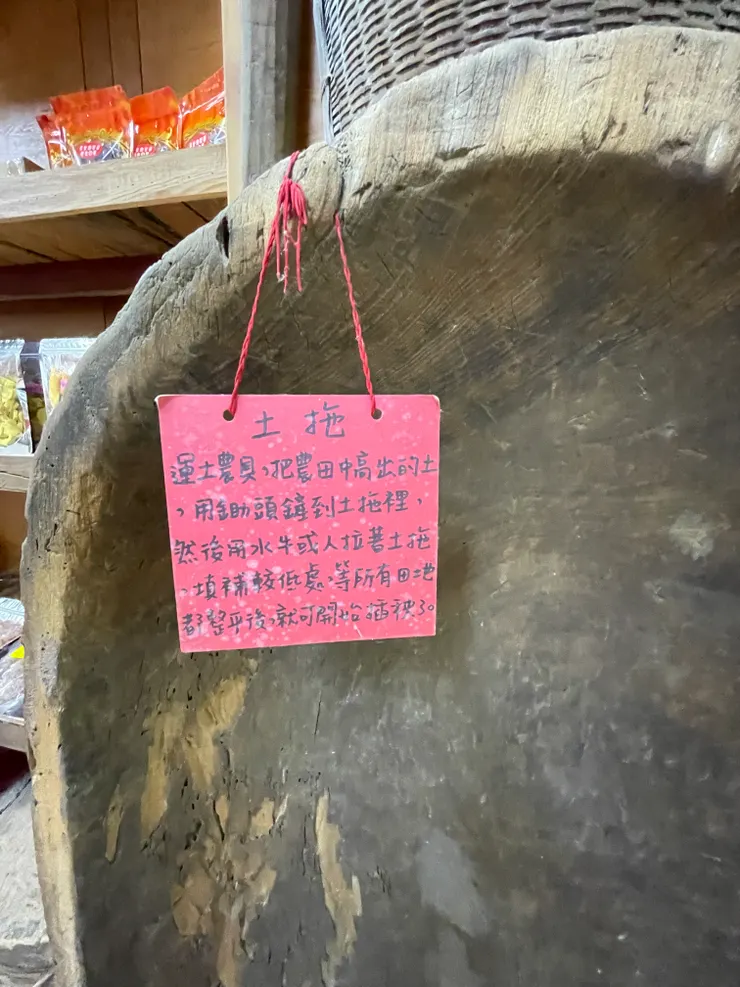 土拖
運土農具,把農田中高出的土
,用鋤頭鏟到土拖裡,
然後用水牛或人拉著土拖
、填補較低處,等所有田地
都整平後,就可開始插秧了。